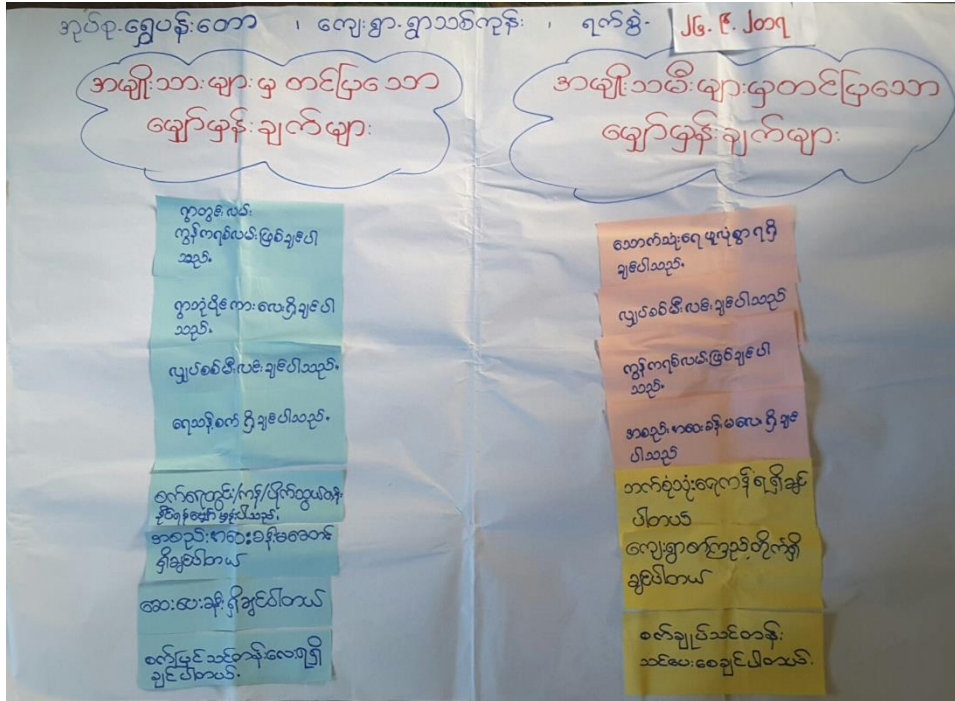 အုပ်စု-ရွှေပန်းတော ၊ ကျေးရွာ-ရွာသစ်ကုန်း ၊ ရက်စွဲ- ၂၆.၉.၂၀၁၇
အမျိုးသားများမှ တင်ပြသော
မျှော်မှန်းချက်များ
ရွာတွင်းလမ်း
ကွန်ကရစ်လမ်းဖြစ်ချင်ပါ
သည်။
ရွာဘုံပိုင်ကားလေးရှိချင်ပါ
သည်။
လျှပ်စစ်မီးလင်းချင်ပါသည်။
ရေသန့်စက်ရှိချင်ပါသည်။
စက်ရေတွင်း/ကန်/ပိုက်သွယ်တန်း
နိုင်ရန်မျှော်မှန်းပါသည်။
အစည်းအဝေးခန်းမဆောင်
ရှိချင်ပါတယ်
ဆေးပေးခန်းရှိချင်ပါတယ်
စက်ပြင်သင်တန်းလေးရရှိ
ချင်ပါတယ်.
အမျိုးသမီးများမှတင်ပြသော
မျှော်မှန်းချက်များ
သောက်သုံးရေလုံလောက်စွာရရှိ
ချင်ပါသည်။
လျှပ်စစ်မီးလင်းချင်ပါသည်
ကွန်ကရစ်လမ်းဖြစ်ချင်ပါ
သည်.
အစည်းအဝေးခန်းမလေးရှိချင်
ပါသည်
ဘက်စုံသုံးရေကန်ရရှိချင်
ပါတယ်
ကျေးရွာစာကြည့်တိုက်ရှိ
ချင်ပါတယ်
စက်ချုပ်သင်တန်း
သင်ပေးစေချင်ပါတယ်.